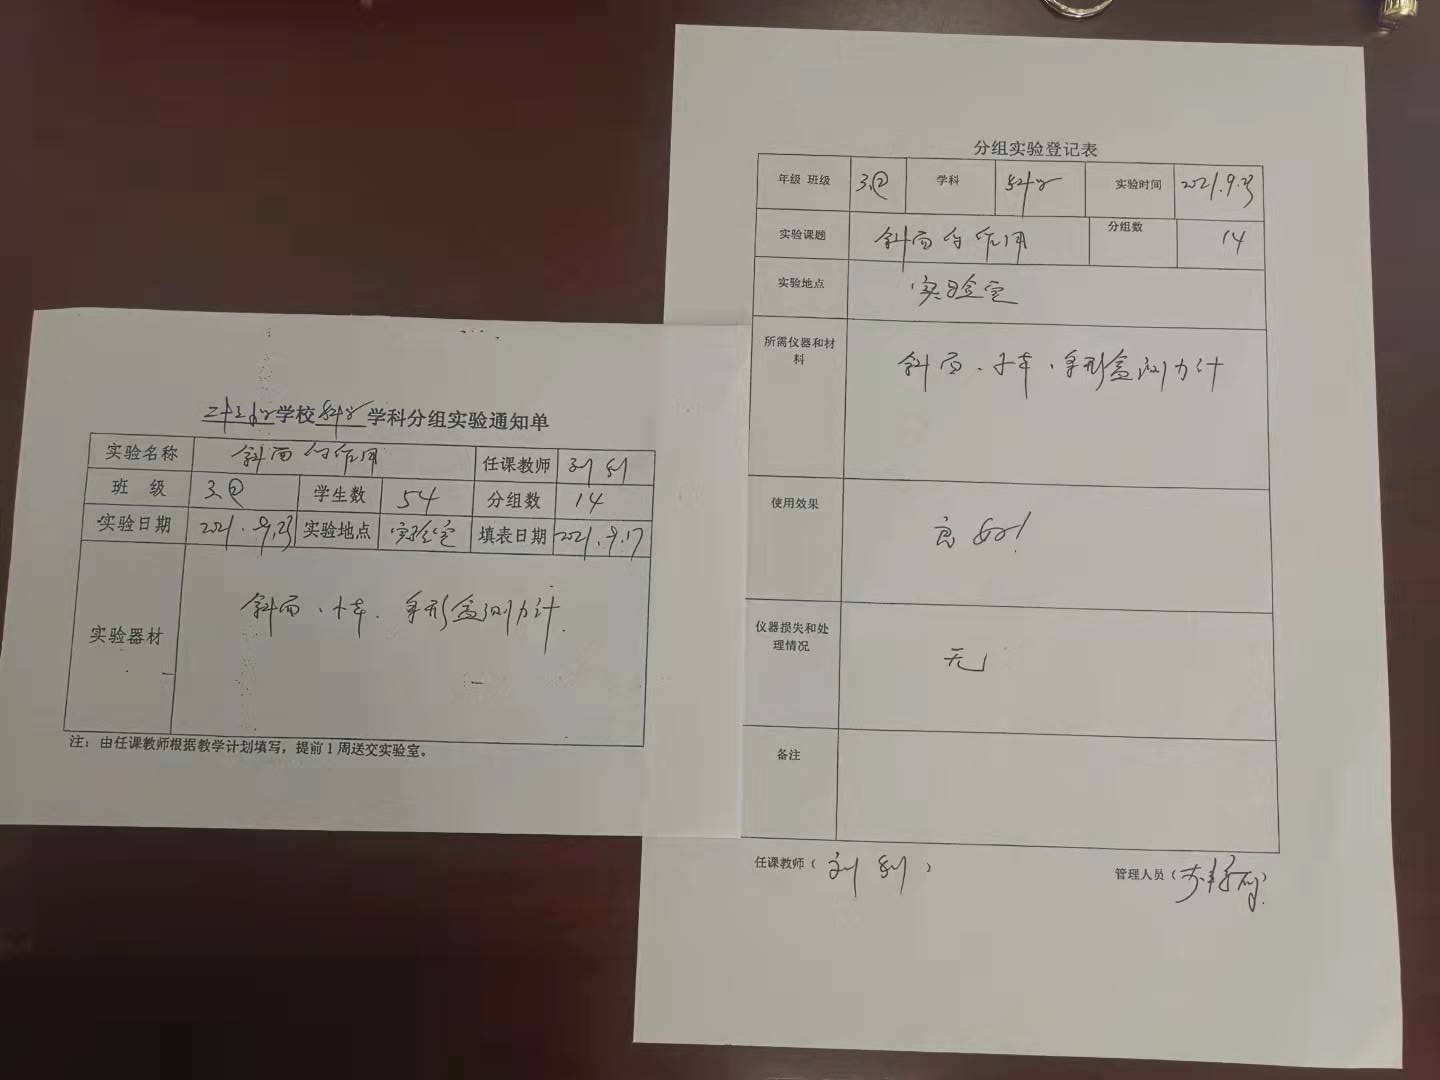 学校科学学科分组实验通知单
实验名称 斜面的作用 任课教师 刘
班 级 3.② 学生数 54 分组数 14
实验日期 2021.9.23 实验地点 实验室 填表日期 2021.9.17
实验器材 斜面、小车、盒测力计.
注：由任课教师根据教学计划填写，提前1周送交实验室。
分组实验登记表
年级 班级 3.② 学科 科学 实验时间 2021.9.23
实验课题 斜面的作用 分组数 14
实验地点 实验室
所需仪器和材料 斜面、小车、盒测力计
使用效果 良好!
仪器损失和处理情况 无
备注
任课教师（刘 ） 管理人员（ ）